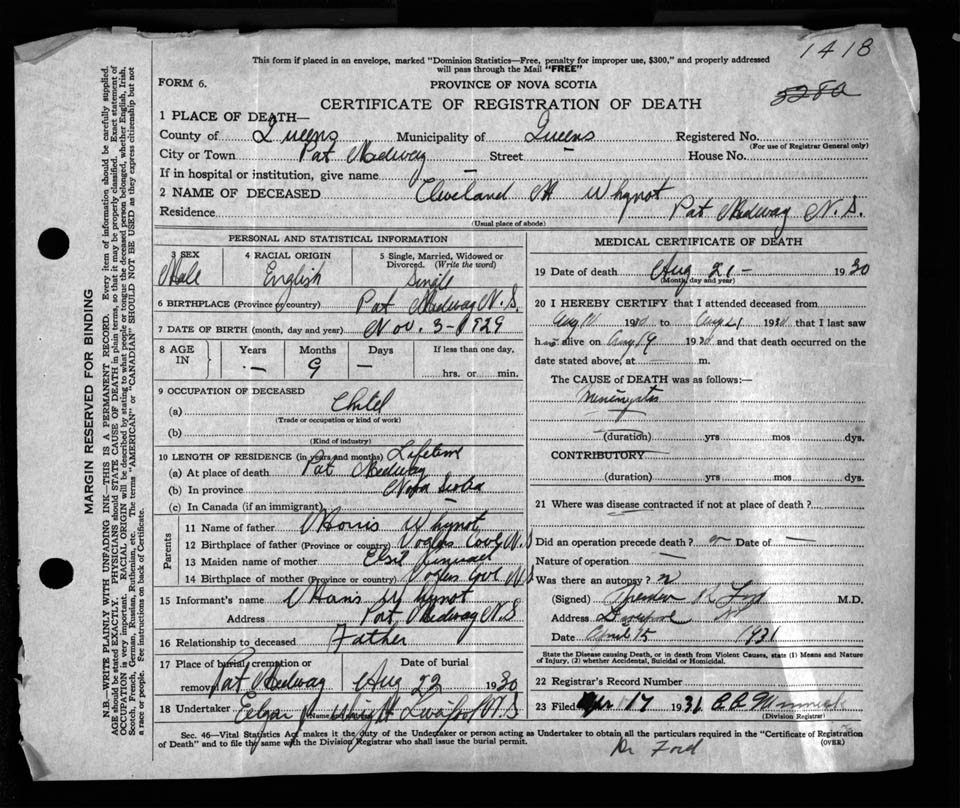 1418
This form if placed in an envelope, marked "Dominion Statistics—Free, penalty for improper use, $300," and properly addressed
will pass through the Mail "FREE"
FORM 6.
PROVINCE OF NOVA SCOTIA
5280
CERTIFICATE OF REGISTRATION OF DEATH
1 PLACE OF DEATH—
County of Queens Municipality of Queens Registered No.
(For use of Registrar General only)
City or Town Port Medway Street — House No.
If in hospital or institution, give name —
2 NAME OF DECEASED Cleveland M Whynot
Residence Port Medway N.S.
(Usual place of abode)
PERSONAL AND STATISTICAL INFORMATION
3 SEX 4 RACIAL ORIGIN 5 Single, Married, Widowed or
Divorced. (Write the word)
Male English Single
6 BIRTHPLACE (Province or country) Port Medway N.S.
7 DATE OF BIRTH (month, day and year) Nov. 3 - 1929
8 AGE IN Years Months Days If less than one day,
— 9 — hrs. or min.
9 OCCUPATION OF DECEASED
(a) Child
(Trade or occupation or kind of work)
(b)
(Kind of industry)
10 LENGTH OF RESIDENCE (in years and months) Lifetime
(a) At place of death Port Medway
(b) In province Nova Scotia
(c) In Canada (if an immigrant)
Parents
11 Name of father Whynot
12 Birthplace of father (Province or country) Voglers Cove N.S
13 Maiden name of mother Elsie
14 Birthplace of mother (Province or country) Voglers Cove N.S
15 Informant's name Whynot
Address Port Medway N.S
16 Relationship to deceased Father
17 Place of burial, cremation or
removal Port Medway
Date of burial
Aug 23 1930
18 Undertaker Edgar Wright Liverpool N.S
(Name and address)
MEDICAL CERTIFICATE OF DEATH
19 Date of death Aug 21 — 1930
(Month, day and year)
20 I HEREBY CERTIFY that I attended deceased from
Aug 11 1930 to Aug 21 1930 that I last saw
him alive on Aug 19 1930 and that death occurred on the
date stated above, at — m.
The CAUSE OF DEATH was as follows:—
Meningitis
(duration) yrs mos dys.
CONTRIBUTORY
(duration) yrs mos dys.
21 Where was disease contracted if not at place of death?
Did an operation precede death? Date of —
Nature of operation —
Was there an autopsy? no
(Signed) Ford M.D.
Address Liverpool NS
Date April 15 1931
State the Disease causing Death, or in death from Violent Causes, state (1) Means and Nature
of Injury, (2) whether Accidental, Suicidal or Homicidal.
22 Registrar's Record Number
23 Filed Apr 17 1931
(Division Registrar)
Sec. 46—Vital Statistics Act makes it the duty of the Undertaker or person acting as Undertaker to obtain all the particulars required in the "Certificate of Registration
of Death" and to file the same with the Division Registrar who shall issue the burial permit.
(OVER)
Dr Ford
MARGIN RESERVED FOR BINDING
N.B.—WRITE PLAINLY WITH UNFADING INK—THIS IS A PERMANENT RECORD. Every item of information should be carefully supplied.
AGE should be stated EXACTLY. PHYSICIANS should STATE CAUSE OF DEATH in plain terms, so that it may be properly classified. Exact statement of
OCCUPATION is very important. RACIAL ORIGIN will be described by stating to what people or tongue the deceased person belonged, whether English, Irish,
Scotch, French, German, Russian, Ruthenian, etc. The terms "AMERICAN" or "CANADIAN" SHOULD NOT BE USED as they express citizenship but not
a race or people. See instructions on back of Certificate.